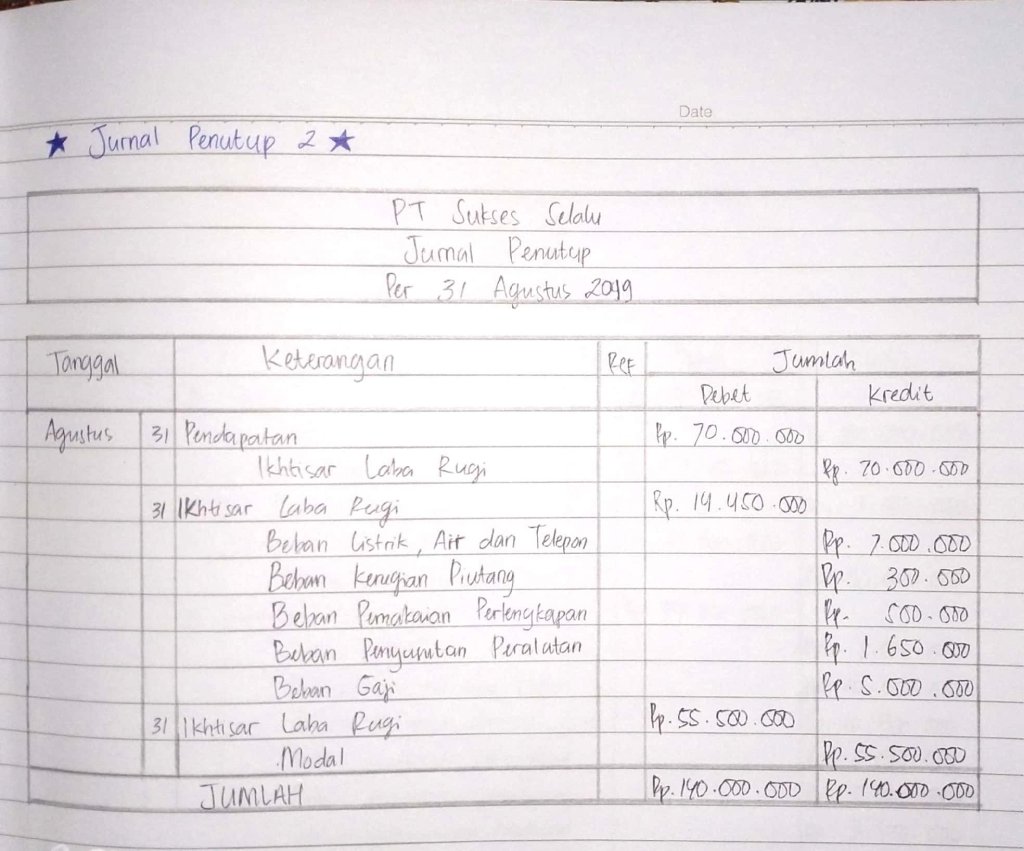 Date
★ Jurnal Penutup 2 ★
PT Sukses Selalu
Jurnal Penutup
Per 31 Agustus 2019
Tanggal Keterangan Ref Jumlah
Debet Kredit
Agustus 31 Pendapatan Rp. 70.000.000
Ikhtisar Laba Rugi Rp. 70.000.000
31 Ikhtisar Laba Rugi Rp. 14.450.000
Beban Listrik, Air dan Telepon Rp. 7.000.000
Beban Kerugian Piutang Rp. 300.000
Beban Pemakaian Perlengkapan Rp. 500.000
Beban Penyusutan Peralatan Rp. 1.650.000
Beban Gaji Rp. 5.000.000
31 Ikhtisar Laba Rugi Rp. 55.500.000
Modal Rp. 55.500.000
JUMLAH Rp. 140.000.000 Rp. 140.000.000